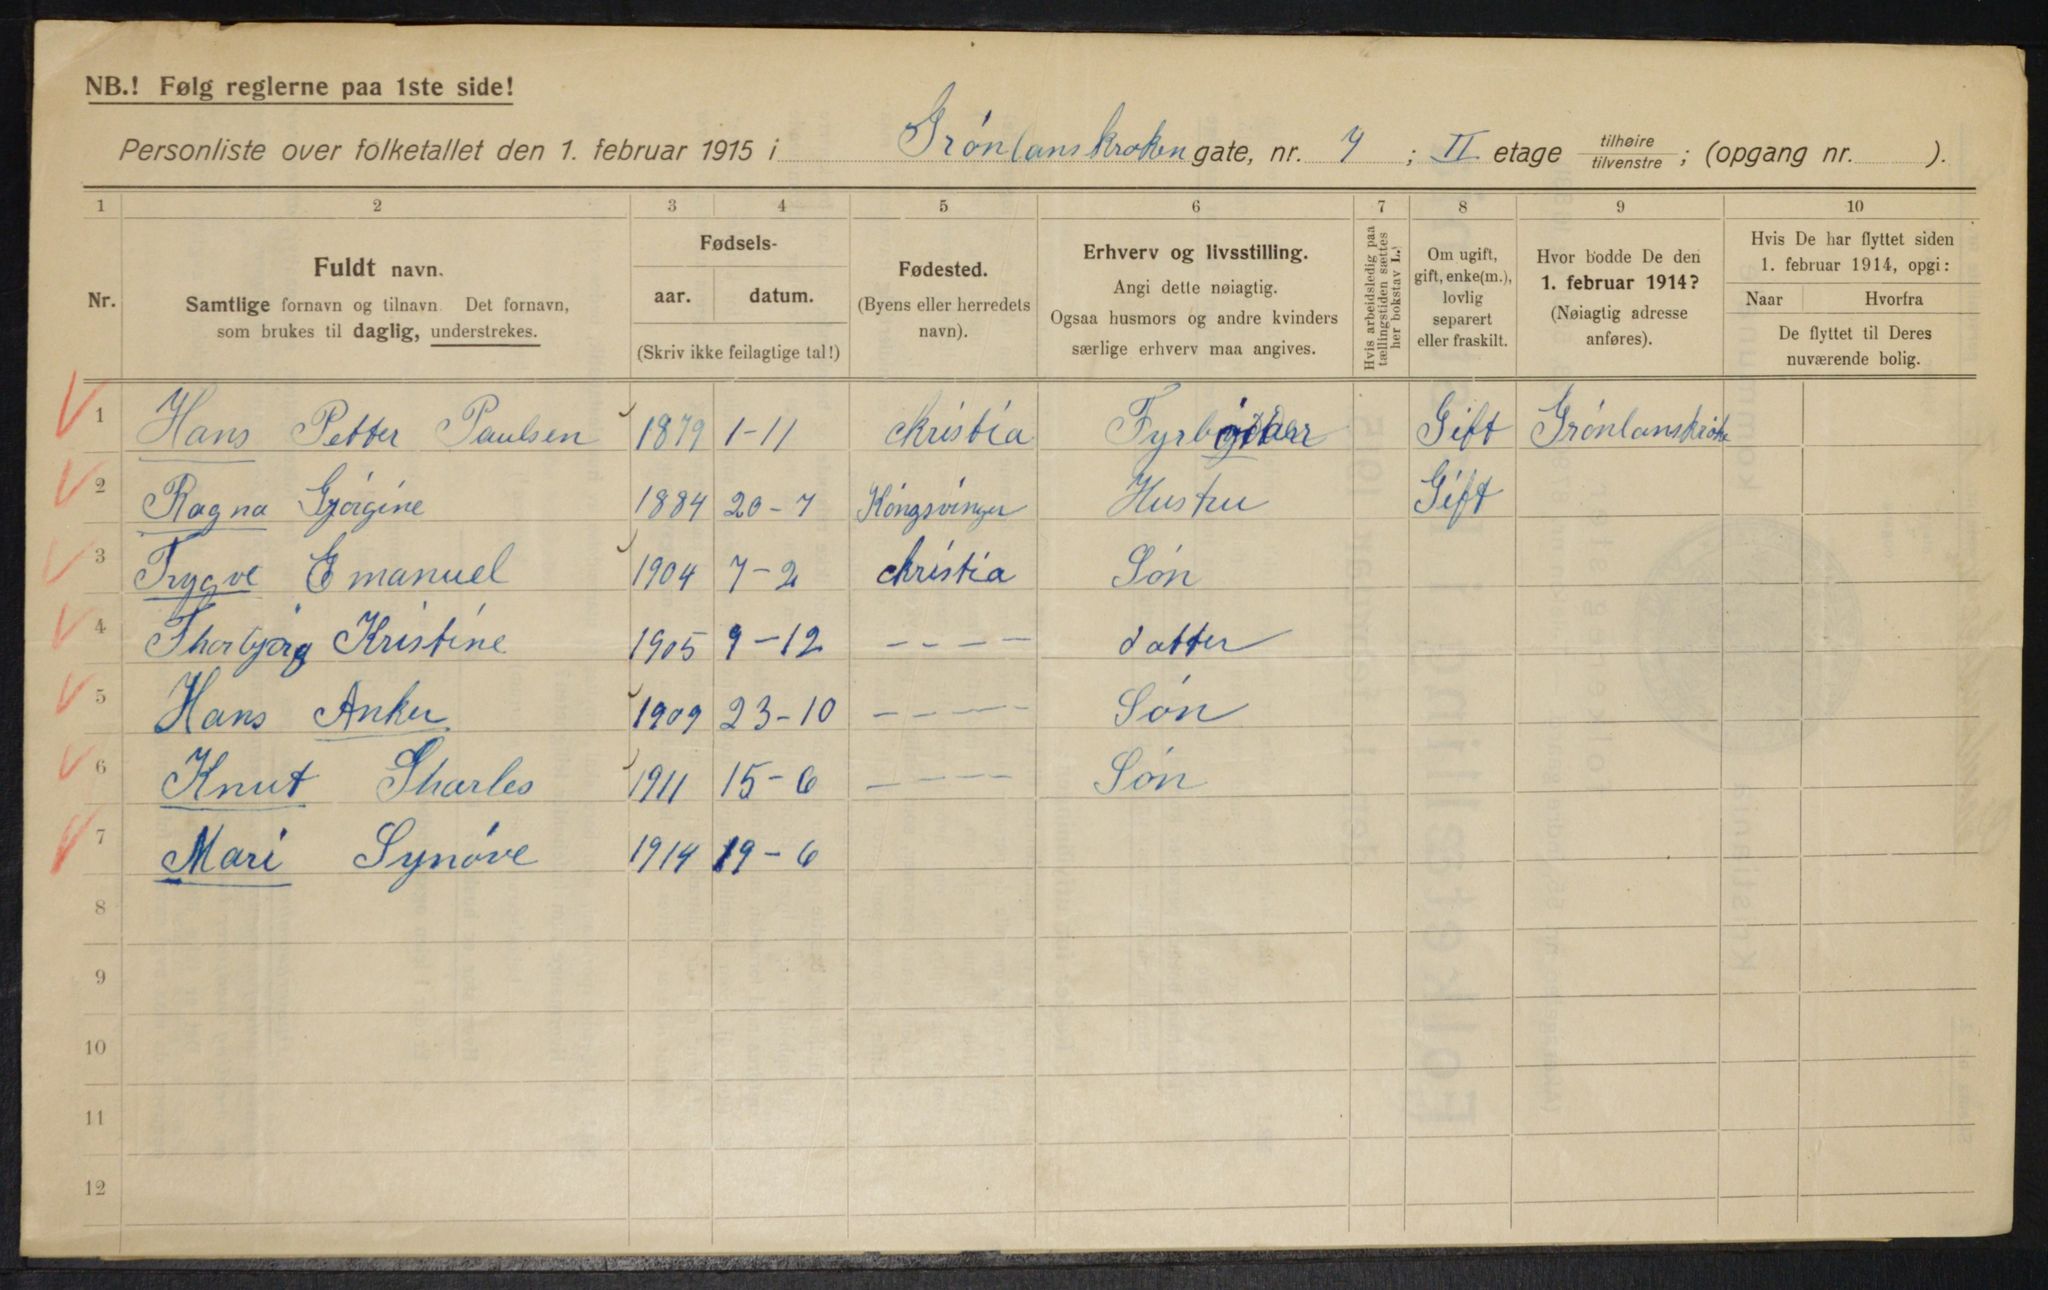 NB.! Følg reglerne paa 1ste side!
Personliste over folketallet den 1. februar 1915 i Grønlanskroken gate, nr. 7 ; II etage tilhøire tilvenstre ; (opgang nr. ).
1 2 3 4 5 6 7 8 9 10
Nr.
Fuldt navn.
Samtlige fornavn og tilnavn. Det fornavn,
som brukes til daglig, understrekes.
Fødsels-
aar. datum.
(Skriv ikke feilagtige tal!)
Fødested.
(Byens eller herredets
navn).
Erhverv og livsstilling.
Angi dette nøiagtig.
Ogsaa husmors og andre kvinders
særlige erhverv maa angives.
Hvis arbeidsledig paa
tællingstiden sættes
her bokstav L.
Om ugift,
gift, enke(m.),
lovlig
separert
eller fraskilt.
Hvor bodde De den
1. februar 1914?
(Nøiagtig adresse
anføres).
Hvis De har flyttet siden
1. februar 1914, opgi:
Naar Hvorfra
De flyttet til Deres
nuværende bolig.
1 Hans Petter Paulsen 1879 1-11 Kristia Fyrbøter Gift Grønlanskrok
2 Ragna Gjørgine 1884 20-7 Kongsvinger Hustru Gift
3 Trygve Emanuel 1904 7-2 Kristia Søn
4 Thorbjørg Kristine 1905 9-12 - - - - datter
5 Hans Anker 1909 23-10 - - - - Søn
6 Knut Sharles 1911 15-6 - - - - Søn
7 Mari Synøve 1914 19-6
8
9
10
11
12